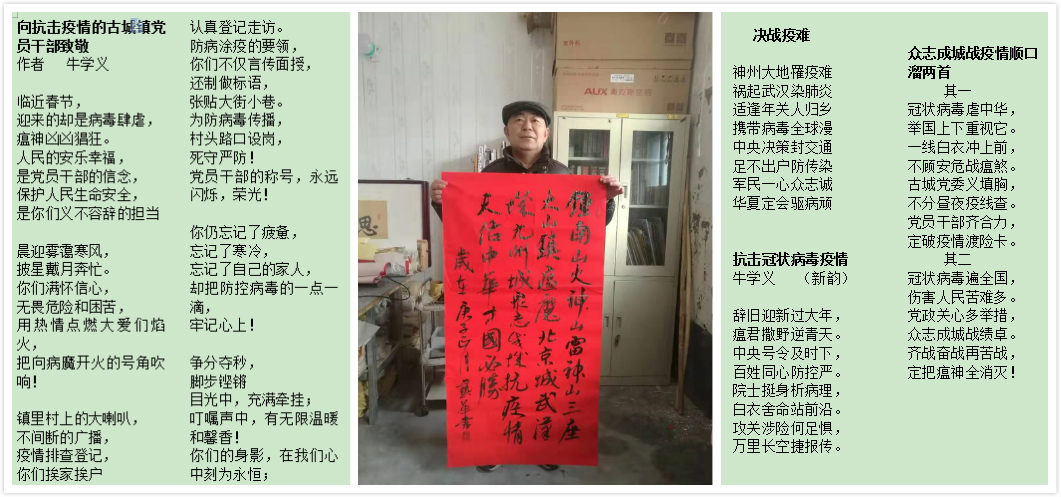 向抗击疫情的古城镇党
员干部致敬
作者 牛学义
临近春节，
迎来的却是病毒肆虐，
瘟神凶凶猖狂。
人民的安乐幸福，
是党员干部的信念，
保护人民生命安全，
是你们义不容辞的担当
晨迎雾霭寒风，
披星戴月奔忙。
你们满怀信心，
无畏危险和困苦，
用热情点燃大爱们焰
火，
把向病魔开火的号角吹
响！
镇里村上的大喇叭，
不间断的广播，
疫情排查登记，
你们挨家挨户
认真登记走访。
防病涂疫的要领，
你们不仅言传面授，
还制做标语，
张贴大街小巷。
为防病毒传播，
村头路口设岗，
死守严防！
党员干部的称号，永远
闪烁，荣光！
你仍忘记了疲惫，
忘记了寒冷，
忘记了自己的家人，
却把防控病毒的一点一
滴，
牢记心上！
争分夺秒，
脚步铿锵
目光中，充满牵挂；
叮嘱声中，有无限温暖
和馨香！
你们的身影，在我们心
中刻为永恒；
AUX
鍾南山火神山雷神山三座
大山鎮瘟魔北京城武漢
城九州城眾志成城抗疫情
天佑中華才國必勝
歲在庚子正月
决战疫难
神州大地罹疫难
祸起武汉染肺炎
适逢年关人归乡
携带病毒全球漫
中央决策封交通
足不出户防传染
军民一心众志诚
华夏定会驱病顽
抗击冠状病毒疫情
牛学义 （新韵）
辞旧迎新过大年，
瘟君撒野逆青天。
中央号令及时下，
百姓同心防控严。
院士挺身析病理，
白衣舍命站前沿。
攻关涉险何足惧，
万里长空捷报传。
众志成城战疫情顺口
溜两首
其一
冠状病毒虐中华，
举国上下重视它。
一线白衣冲上前，
不顾安危战瘟煞。
古城党委义填胸，
不分昼夜疫线查。
党员干部齐合力，
定破疫情渡险卡。
其二
冠状病毒遍全国，
伤害人民苦难多。
党政关心多举措，
众志成城战绩卓。
齐战奋战再苦战，
定把瘟神全消灭！